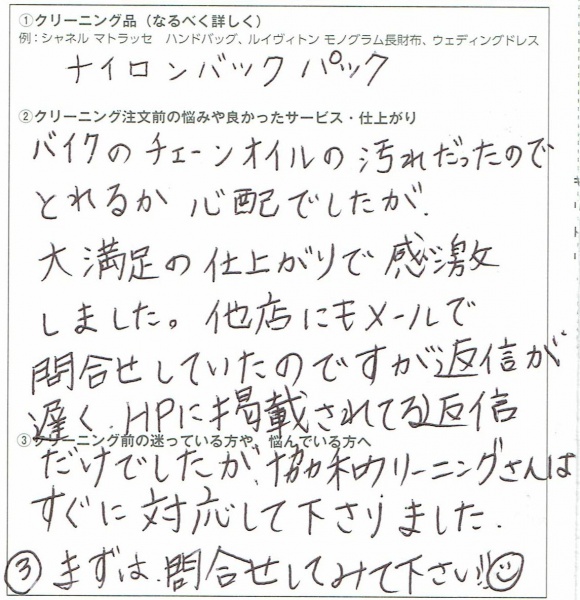 ①クリーニング品（なるべく詳しく）
例：シャネル マトラッセ ハンドバッグ、ルイヴィトン モノグラム長財布、ウェディングドレス
ナイロンバックパック
②クリーニング注文前の悩みや良かったサービス・仕上がり
バイクのチェーンオイルの汚れだったので
とれるか心配でしたが、
大満足の仕上がりで感激
しました。他店にもメールで
問合せしていたのですが返信が
遅く、HPに掲載されてる返信
③クリーニング前の迷っている方や、悩んでいる方へ
だけでしたが、協和クリーニングさんは
すぐに対応して下さりました。
③まずは、問合せしてみて下さい!!
キリトリ